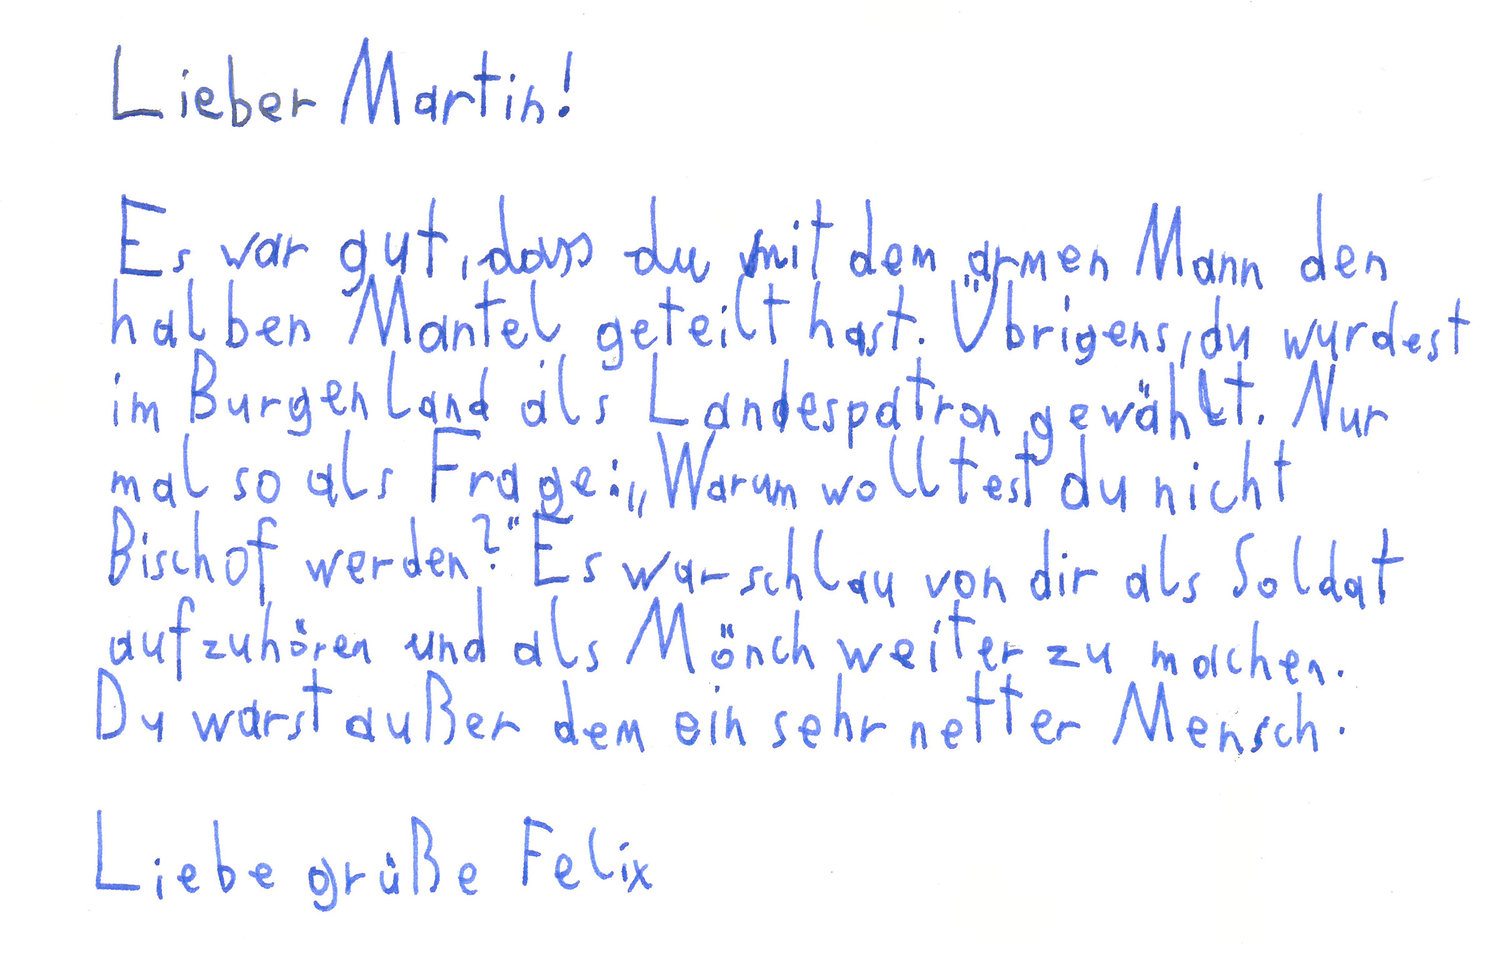 Lieber Martin!
Es war gut, dass du mit dem armen Mann den
halben Mantel geteilt hast. Übrigens, du wurdest
im Burgenland als Landespatron gewählt. Nur
mal so als Frage: „Warum wolltest du nicht
Bischof werden?" Es war schlau von dir als Soldat
aufzuhören und als Mönch weiter zu machen.
Du warst außer dem ein sehr netter Mensch.
Liebe grüße Felix